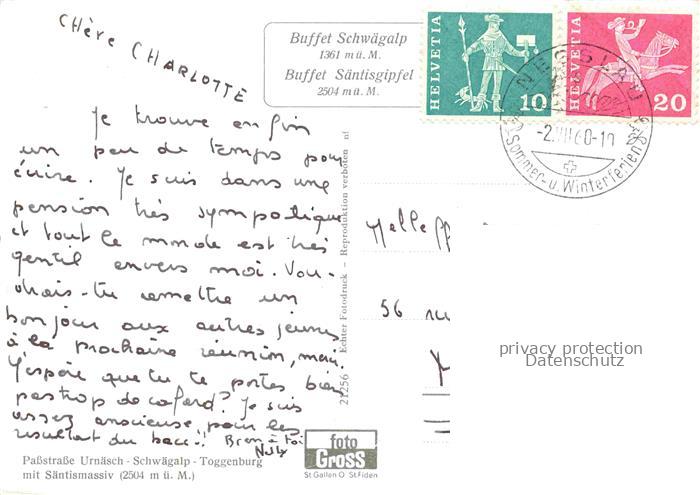 Chère CHARLOTTE
Je trouve enfin
un peu de temps pour
écrire. Je suis dans une
pension très sympatique
et tout le monde est très
gentil envers moi. Vou-
drais-tu remettre un
bonjour aux autres jeunes
à la prochaine réunion, merci.
J'espère que tu te portes bien
pas trop de cafard? Je suis
assez anxieuse pour les
résultat du bacc!! Bien à toi
Buffet Schwägalp
1361 m ü. M.
Buffet Säntisgipfel
2504 m ü. M.
HELVETIA 10
HELVETIA 20
NESSLAU
-2.VII.60-10
Sommer- u. Winterferien
21256 Echter Fotodruck — Reproduktion verboten nf
Melle
56 rue
privacy protection
Datenschutz
foto
GROSS
St Gallen O St.Fiden
Paßstraße Urnäsch - Schwägalp - Toggenburg
mit Säntismassiv (2504 m ü. M.)